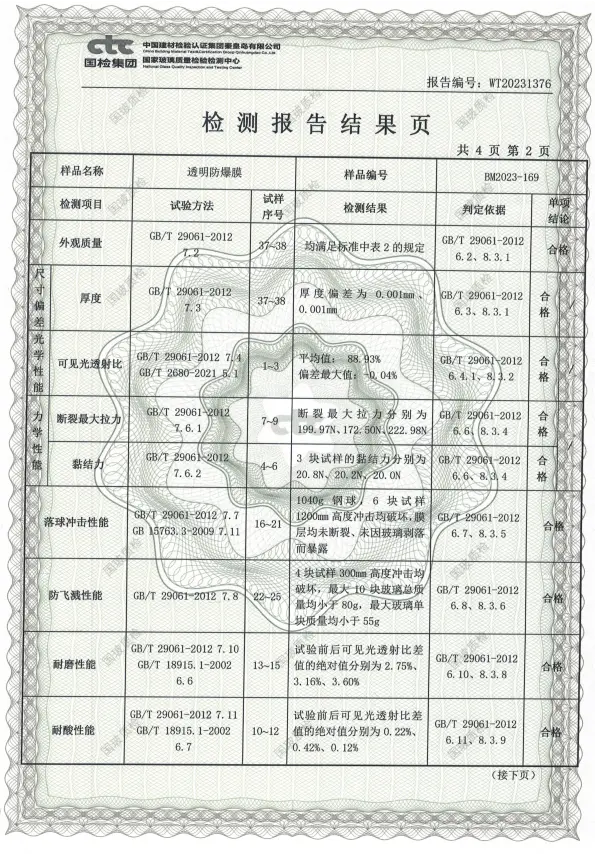 ctc 中国建材检验认证集团秦皇岛有限公司
China Building Material Test&Certification Group Qinhuangdao Co.,Ltd
国检集团 国家玻璃质量检验检测中心
National Glass Quality Inspection and Testing Center
报告编号：WT20231376
检测报告结果页
共 4 页 第 2 页
样品名称 透明防爆膜 样品编号 BM2023-169
检测项目 试验方法 试样序号 检测结果 判定依据 单项结论
外观质量 GB/T 29061-2012 7.2 37~38 均满足标准中表 2 的规定 GB/T 29061-2012 6.2、8.3.1 合格
尺寸偏差 厚度 GB/T 29061-2012 7.3 37~38 厚度偏差为 0.001mm、0.001mm GB/T 29061-2012 6.3、8.3.1 合格
光学性能 可见光透射比 GB/T 29061-2012 7.4 GB/T 2680-2021 5.1 1~3 平均值： 88.93% 偏差最大值：-0.04% GB/T 29061-2012 6.4.1、8.3.2 合格
力学性能 断裂最大拉力 GB/T 29061-2012 7.6.1 7~9 断裂最大拉力分别为 199.97N、172.50N、222.98N GB/T 29061-2012 6.6、8.3.4 合格
黏结力 GB/T 29061-2012 7.6.2 4~6 3 块试样的黏结力分别为 20.8N、20.2N、20.0N GB/T 29061-2012 6.6、8.3.4 合格
落球冲击性能 GB/T 29061-2012 7.7 GB 15763.3-2009 7.11 16~21 1040g 钢球，6 块试样 1200mm 高度冲击均破坏，膜层均未断裂、未因玻璃剥落而暴露 GB/T 29061-2012 6.7、8.3.5 合格
防飞溅性能 GB/T 29061-2012 7.8 22~25 4 块试样 300mm 高度冲击均破坏，最大 10 块玻璃总质量均小于 80g，最大玻璃单块质量均小于 55g GB/T 29061-2012 6.8、8.3.6 合格
耐磨性能 GB/T 29061-2012 7.10 GB/T 18915.1-2002 6.6 13~15 试验前后可见光透射比差值的绝对值分别为 2.75%、3.16%、3.60% GB/T 29061-2012 6.10、8.3.8 合格
耐酸性能 GB/T 29061-2012 7.11 GB/T 18915.1-2002 6.7 10~12 试验前后可见光透射比差值的绝对值分别为 0.22%、0.42%、0.12% GB/T 29061-2012 6.11、8.3.9 合格
（接下页）